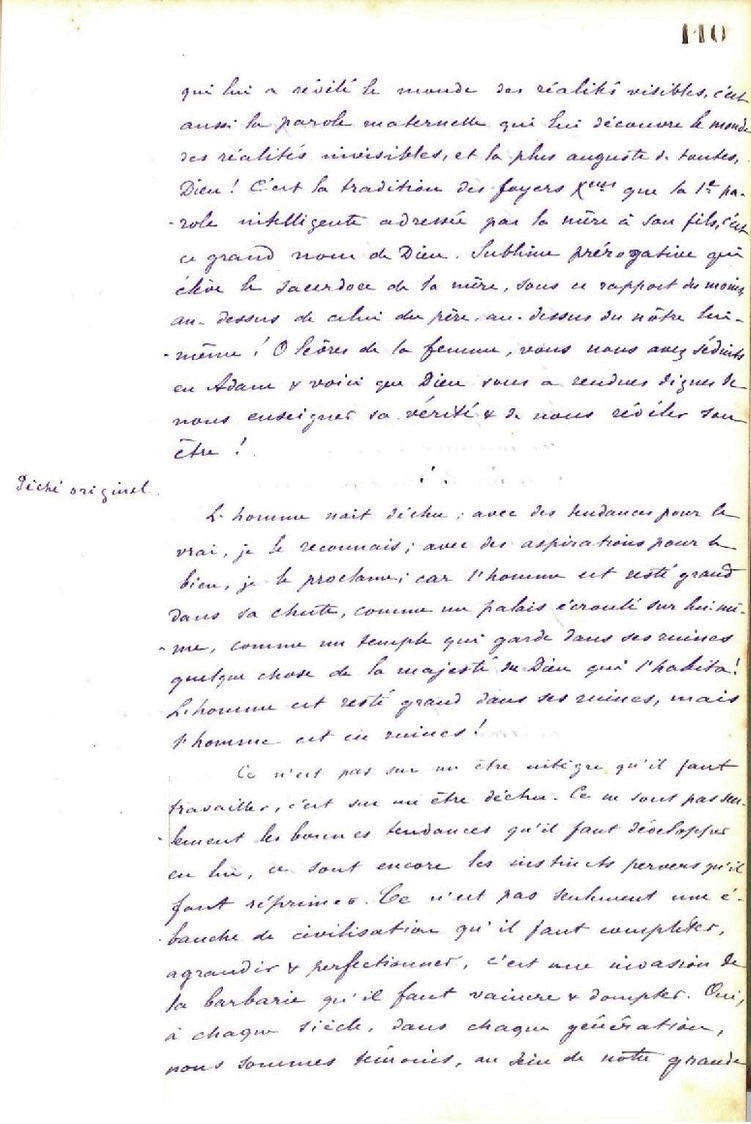 110
qui lui a révélé le monde des réalités visibles, c'est
aussi la parole maternelle qui lui découvre le monde
des réalités invisibles, et la plus auguste de toutes,
Dieu! C'est la tradition des foyers Xens que la 1re pa-
-role intelligente adressée par la mère à son fils, c'est
ce grand nom de Dieu. Sublime prérogative qui
élève le sacerdoce de la mère, sous ce rapport du moins,
au-dessus de celui du père, au-dessus du nôtre lui-
-même! O lèvres de la femme, vous nous avez séduits
en Adam & voici que Dieu vous a rendues dignes de
nous enseigner sa vérité & de nous révéler son
être!
Péché originel.
L'homme naît déchu; avec des tendances pour le
vrai, je le reconnais; avec des aspirations pour le
bien, je le proclame; car l'homme est resté grand
dans sa chute, comme un palais écroulé sur lui-mê-
-me, comme un temple qui garde dans ses ruines
quelque chose de la majesté du Dieu qui l'habita!
L'homme est resté grand dans ses ruines, mais
l'homme est en ruines!
Ce n'est pas sur un être intègre qu'il faut
travailler, c'est sur un être déchu. Ce ne sont pas seu-
-lement les bonnes tendances qu'il faut développer
en lui, ce sont encore les instincts pervers qu'il
faut réprimer. Ce n'est pas seulement une é-
-bauche de civilisation qu'il faut compléter,
agrandir & perfectionner, c'est une invasion de
la barbarie qu'il faut vaincre & dompter. Oui,
à chaque siècle, dans chaque génération,
nous sommes témoins, au sein de notre grande